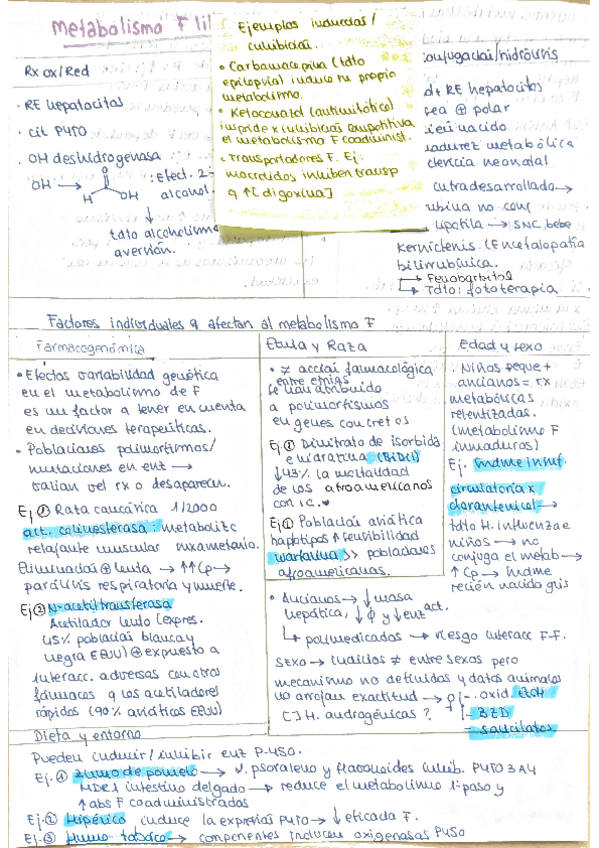 Metabolismo F
Ejemplos inductas /
inhibidas.
• Carbamacepina (tdto
epilepsia) induce su propio
metabolismo.
• Ketoconazol (antimicótico)
impide x inhibición competitiva
el metabolismo F coadminist.
• Transportadores F. Ej:
macrólidos inhiben transp
q ↑[digoxina]
Rx ox/Red
· RE hepatocitos
· cit P450
· OH deshidrogenasa
OH → H OH : Efect. 2
alcohol
↓
tdto alcoholismo
aversión.
conjugación/hidrólisis
RE hepatocitos
⊕ polar
nacido
metabólica
neonatal
desarrollado→
no conj
→ SNC, bebe
Kernicterus. (Encefalopatía
bilirrubínica.
→ Fenobarbital
→ Tdto: fototerapia
Factores individuales q afectan al metabolismo F
Farmacogenómica
• Efectos variabilidad genética
en el metabolismo de F
es un factor a tener en cuenta
en decisiones terapeúticas.
• Poblaciones polimorfismos/
mutaciones en enz →
varían vel rx o desaparecen.
Ej ① Rata caucárica 1/2000
act. colinesterasa: metabolito
relajante muscular suxametonio.
Eliminación ⊕ lenta → ↑↑Cp→
parálisis respiratoria y muerte.
Ej② N-acetiltransferasa
Acetilador lento (expres.
45% población blanca y
negra EEUU) ⊕ expuesto a
interacc. adversas con otros
fármacos q los acetiladores
rápidos (90% asiáticos EEUU)
Etnia y Raza
• ≠ acción farmacológica
entre etnias
se han atribuido
a polimorfismos
en genes concretos
Ej.① Dinitrato de isorbida
e hidralazina (BiDil)
↓43% la mortalidad
de los afroamericanos
con i.c.
Ej① Población asiática
haplotipos ↑ sensibilidad
warfarina >> poblaciones
afroamericanas.
Edad y sexo
• Niños peque +
ancianos = rx
metabólicas
relentizadas.
(metabolismo F
inmaduros)
Ej. Sndme insuf.
circulatoria x
cloranfenicol →
tdto H. influenzae
niños → no
conjuga el metab→
↑ Cp → sndme
recién nacido gris
• Ancianos → ↓ masa
hepática, ↓ϕ y ↓enz act.
↳ polimedicados → riesgo interacc F-F.
Sexo → indicios ≠ entre sexos pero
mecanismo no definidos y datos animales
no arrojan exactitud → ♀ - oxid. EtOH
[] H. androgénicas ? - BZD
- salicilatos.
Dieta y entorno
Pueden inducir/inhibir enz P-450.
Ej. ① Zumo de pomelo → psoraleno y flavonoides inhib. P450 3A4
MDR1 intestino delgado → reduce el metabolismo 1º paso y
↑ abs F coadministrados
Ej.② Hipérico induce la expresión P450 → ↓ eficacia F.
Ej.③ Humo tabaco → componentes inducen oxigenasas P450